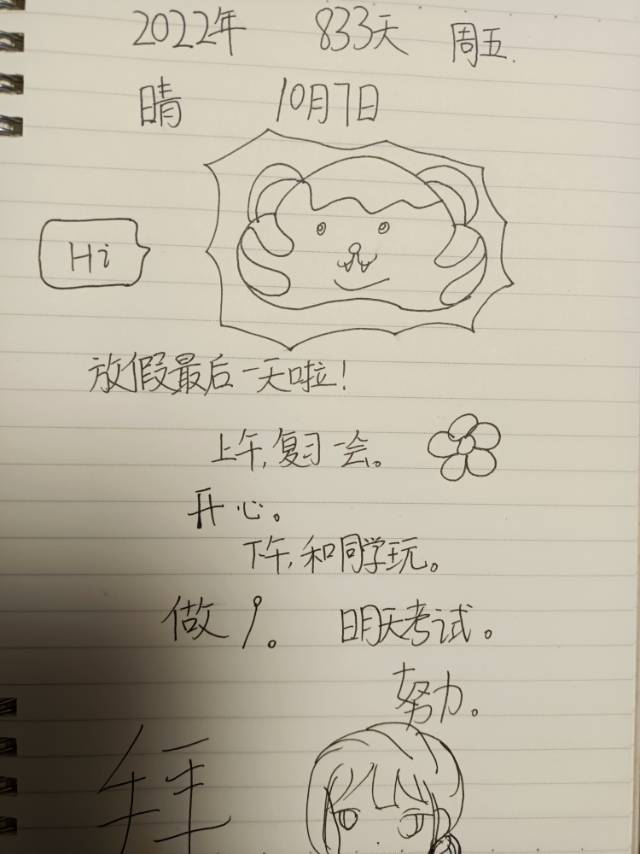 2022年 833天 周五.
晴 10月7日
Hi
放假最后一天啦!
上午,复习一会。
开心。
下午,和同学玩。
做9。 明天考试。
努力。
拜